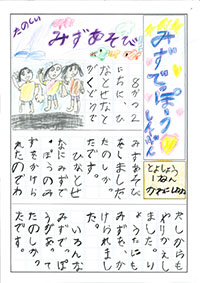 みずでっぽう
しんぶん
たのしい
みずあそび
とよしょう
1ねん
８がつ２
にちに、ひ
なとせなと
がくどうで
みずあそび
をしました。
たのしかっ
たです。
ひなとせ
なにみずで
っぽうのみ
ずをかけら
れたのでわ
たしからも
やりかえし
ました。り
ょうたにも
みずを、か
けられまし
た。
いろんな
みずでっぽ
うがあって
たのしかっ
たです。